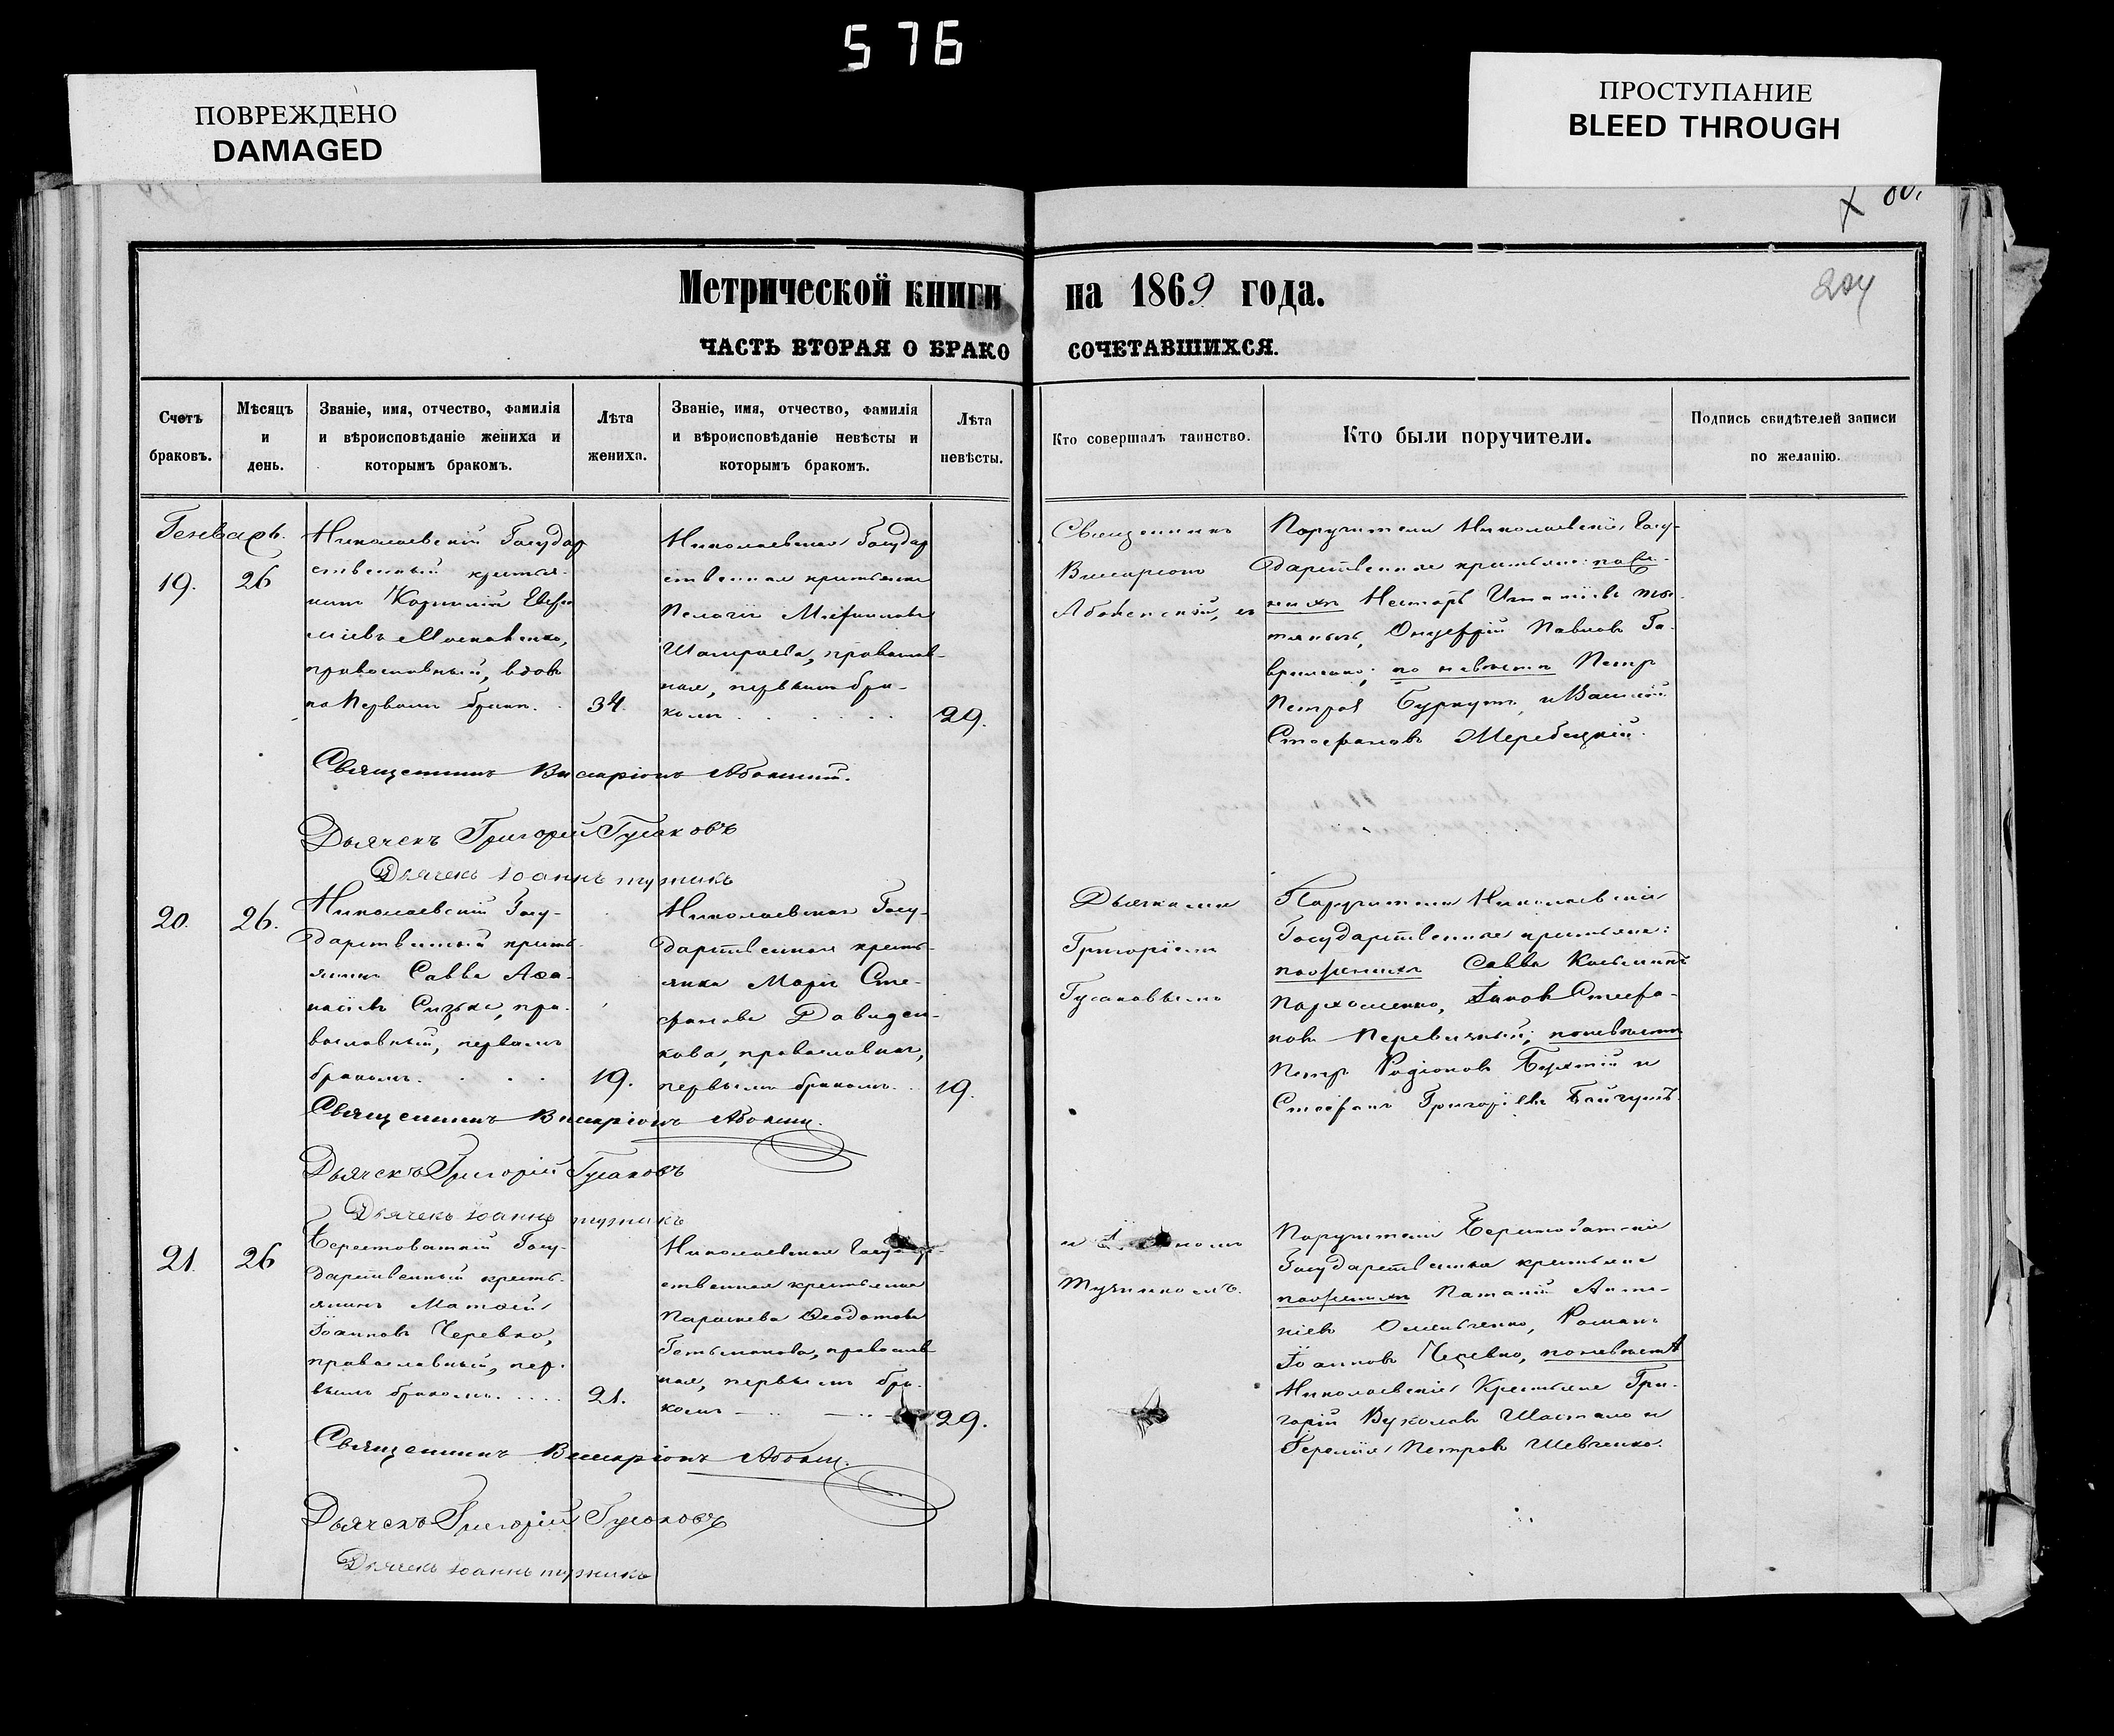 576
ПОВРЕЖДЕНО
DAMAGED
ПРОСТУПАНИЕ
BLEED THROUGH
Метрической книги на 1869 года.
ЧАСТЬ ВТОРАЯ О БРАКОСОЧЕТАВШИХСЯ.
Счетъ браковъ.
Мѣсяцъ и день.
Званіе, имя, отчество, фамилія
и вѣроисповѣданіе жениха и
которымъ бракомъ.
Лѣта жениха.
Званіе, имя, отчество, фамилія
и вѣроисповѣданіе невѣсты и
которымъ бракомъ.
Лѣта невѣсты.
Кто совершалъ таинство.
Кто были поручители.
Подпись свидѣтелей записи
по желанію.
Генварь.
19.
26
Николаевскій Государ
ственный крестья-
нинъ Корнилій Евѳи
міевъ Московенко,
православный, вдовъ
по первомъ бракѣ.
34.
Николаевская Государ
ственная крестьянка
Пелагія
православ-
ная, первымъ бра-
комъ
29.
Священникъ
Виссаріонъ
съ
Поручители Николаевскіе Госу-
дарственные крестьяне: по же-
нихѣ Несторъ Игнатіевъ
Онуфрій Павловъ Га-
вриленко; по невѣстѣ Петръ
Петровъ и Василій
Стефановъ
Священникъ Виссаріонъ
Дьячекъ Григорій Гусаковъ
Дьячекъ Іоаннъ
20.
26.
Николаевскій Госу-
дарственный кресть-
янинъ Савва Аѳа-
насіевъ пра-
вославный, первымъ
бракомъ.
19.
Николаевская Госу-
дарственная кресть-
янка Марія Сте-
фанова Давиден-
кова, православная,
первымъ бракомъ.
19.
Дьячками
Григоріемъ
Гусаковымъ
Поручители Николаевскіе
Государственные крестьяне:
по женихѣ Савва Косьминъ
Пархоменко, Іаковъ Стефа-
новъ по невѣстѣ
Петръ Родіоновъ и
Стефанъ Григоріевъ
Священникъ Виссаріонъ
Дьячекъ Григорій Гусаковъ
Дьячекъ Іоаннъ
21.
26
Берестоватскій Госу-
дарственный кресть-
янинъ Матѳей
Іоанновъ Черевко,
православный, пер-
вымъ бракомъ.
21.
Николаевская
ственная крестьянка
Параскева Ѳеодотова
Гетьманова, православ
ная, первымъ бра-
комъ
29.
и
Поручители Берестоватскіе
Государственные крестьяне
по женихѣ
Омельченко, Романъ
Іоанновъ Черевко, по невѣстѣ
Николаевскіе Крестьяне Гри-
горій Вуколовъ и
Петровъ Шевченко.
Священникъ Виссаріонъ
Дьячекъ Григорій Гусаковъ
Дьячекъ Іоаннъ